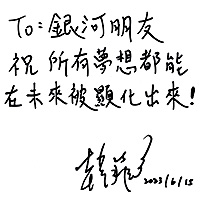 To:銀河朋友
祝 所有夢想都能
在未來被顯化出來!
2023/6/15